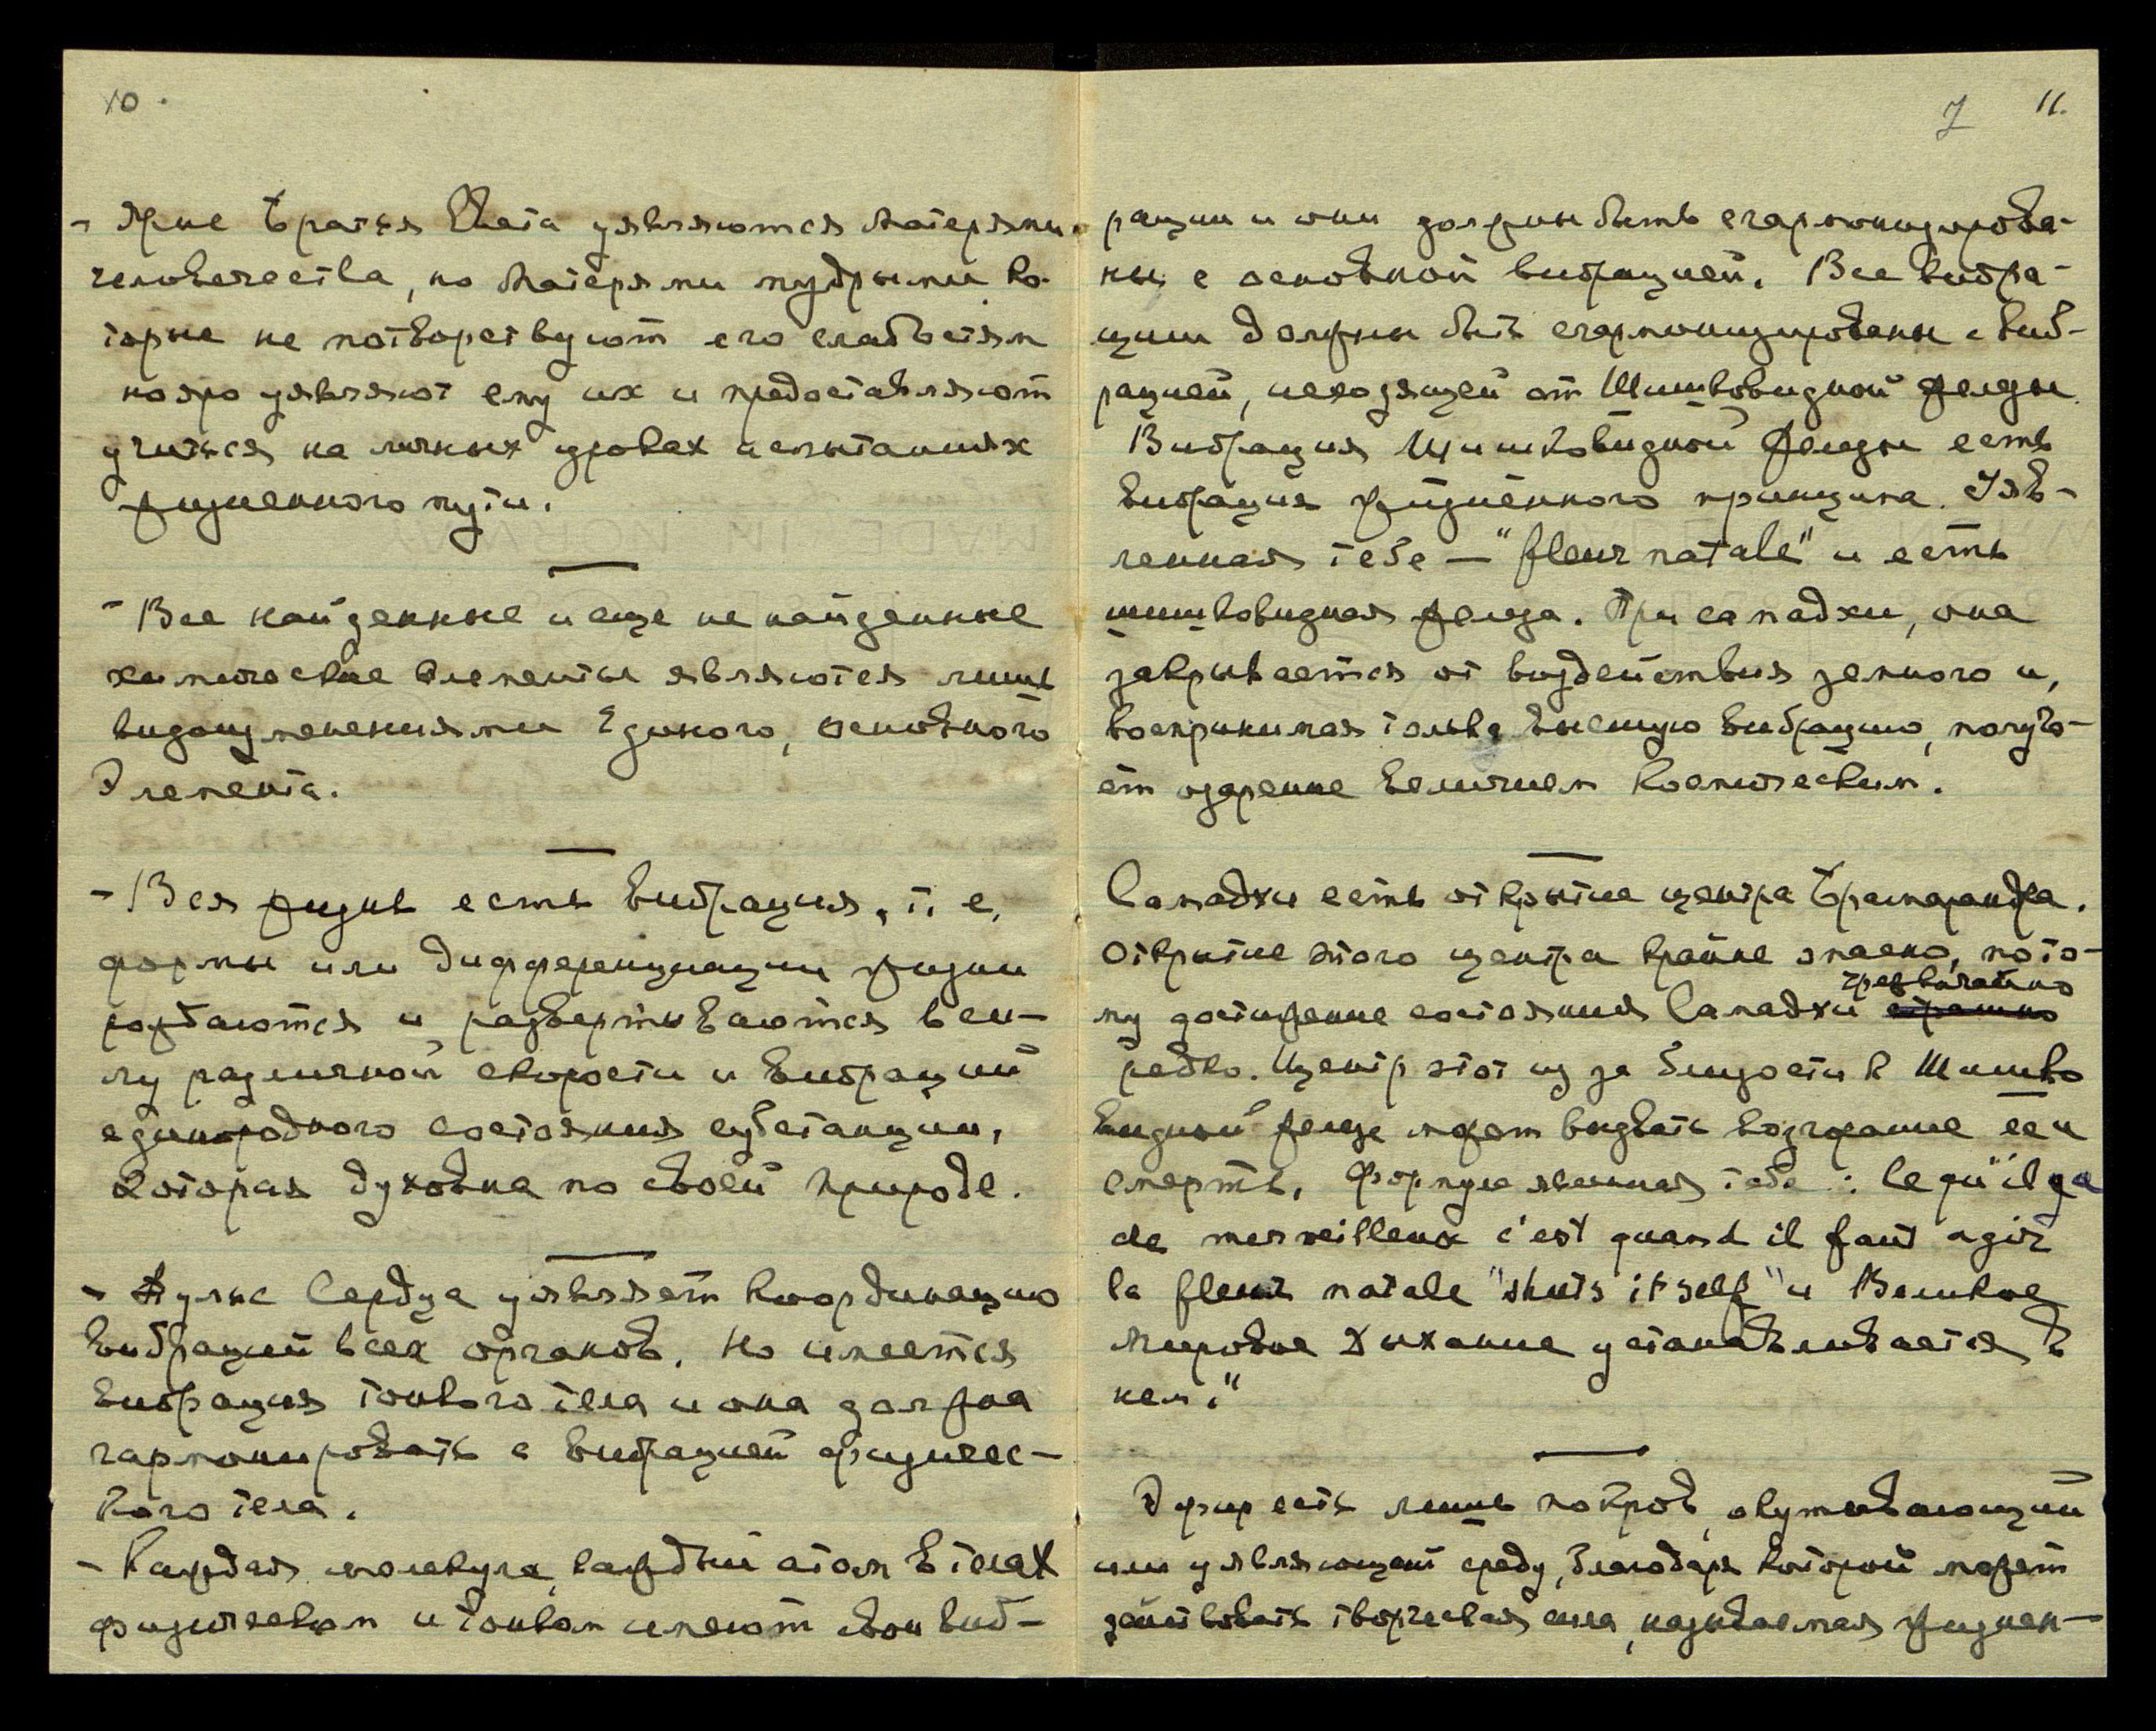 10.
- Ярые Братья Света уявляются Матерями
человечества, но Матерями мудрыми, ко-
торые не потворствуют его слабостям
но яро уявляют ему их и предоставляют
учиться на личных уроках испытаниях
жизненного пути.
- Все найденные и еще не найденные
химические элементы являются лишь
видоизменениями Единого, основного
Элемента.
- Вся жизнь есть вибрация, т. е.
формы или дифференциации жизни
рождаются и развертываются в си-
лу различной скорости и вибраций
единородного состояния субстанции,
которая духовна по своей природе.
- Пульс Сердца уявляет координацию
вибраций всех органов. Но имеется
вибрация тонкого тела и она должна
гармонировать с вибрацией физичес-
кого тела.
- Каждая молекула, каждый атом в телах
физическом и тонком имеют свои виб-
7 11.
рации и они должны быть сгармонизирова-
ны с основной вибрацией. Все вибра-
ции должны быть сгармонизированы с виб-
рацией, исходящей от Шишковидной железы.
Вибрация Шишковидной железы есть
вибрация жизненного принципа. Уяв-
ленная тебе — "fleur natale" и есть
шишковидная железа. При самадхи, она
закрывается от воздействия земного и,
воспринимая только высшую вибрацию, получа-
ет озарение Величием Космическим.
Самадхи есть открытие центра Брамаранфа.
Открытие этого центра крайне опасно, пото-
му достижение состояния Самадхи страшно
чрезвычайно
редко. Центр этот из за близости к Шишко
видной железе может вызвать возгорание ее и
смерть. Формула явленная тебе: "Ce qu'il ya
de merveilleux c'est quand il faut agir
la fleur natale "shuts itself" и Великое
Мировое Дыхание устанавливается в
нем."
Эфир есть лишь покров, окутывающий
или уявляющий среду, благодаря которой может
действовать творческая сила, называемая жизнен-